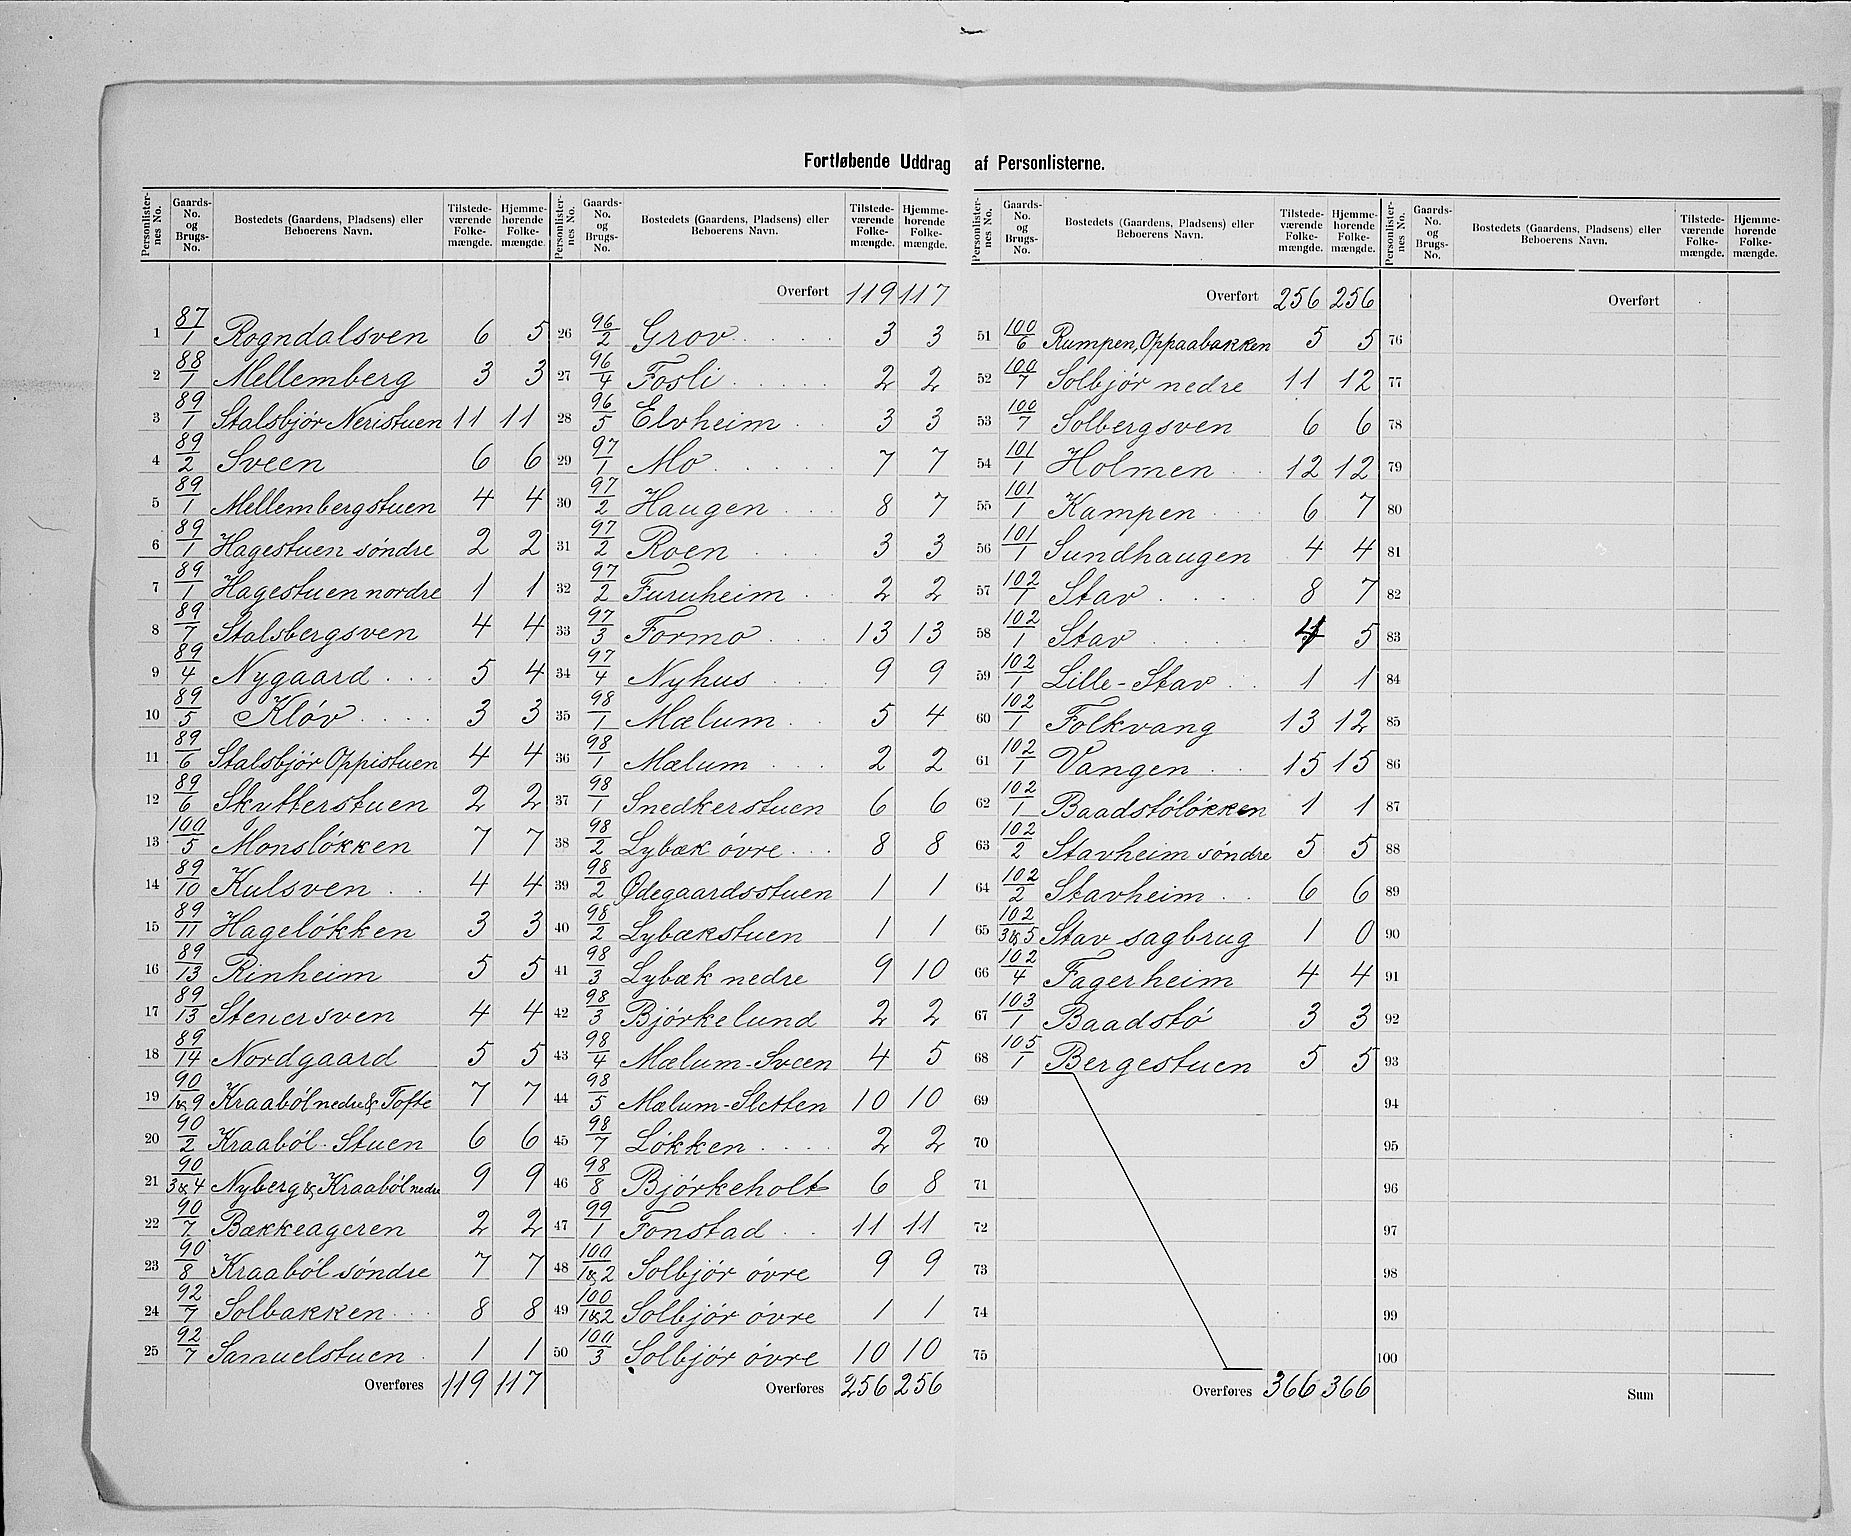 Fortløbende Uddrag af Personlisterne.
Personlisternes No. | Gaards-No. og Brugs-No. | Bostedets (Gaardens, Pladsens) eller Beboerens Navn. | Tilstedeværende Folkemængde. | Hjemmehørende Folkemængde.
1 87/1 Rogndalsven 6 5
2 88/1 Mellemberg 3 3
3 89/1 Stalsbjør Neristuen 11 11
4 89/2 Sveen 6 6
5 89/1 Mellembergstuen 4 4
6 89/1 Hagestuen søndre 2 2
7 89/1 Hagestuen nordre 1 1
8 89/7 Stalsbergsven 4 4
9 89/4 Nygaard 5 4
10 89/5 Kløv 3 3
11 89/6 Stalsbjør Oppistuen 4 4
12 89/6 Skytterstuen 2 2
13 100/5 Monsløkken 7 7
14 89/10 Kulsven 4 4
15 89/11 Hageløkken 3 3
16 89/13 Rinheim 5 5
17 89/13 Stenersven 4 4
18 89/14 Nordgaard 5 5
19 90/1&9 Kraabøl nedre & Tofte 7 7
20 90/2 Kraabøl-Stuen 6 6
21 90/3&4 Nyberg & Kraabøl nedre 9 9
22 90/7 Bækkeageren 2 2
23 90/8 Kraabøl søndre 7 7
24 92/7 Solbakken 8 8
25 92/7 Samuelstuen 1 1
Overføres 119 117
Personlisternes No. | Gaards-No. og Brugs-No. | Bostedets (Gaardens, Pladsens) eller Beboerens Navn. | Tilstedeværende Folkemængde. | Hjemmehørende Folkemængde.
Overført 119 117
26 96/2 Grov 3 3
27 96/4 Fosli 2 2
28 96/5 Elvheim 3 3
29 97/1 Mo 7 7
30 97/2 Haugen 8 7
31 97/2 Roen 3 3
32 97/2 Furuheim 2 2
33 97/3 Formo 13 13
34 97/4 Nyhus 9 9
35 98/1 Mælum 5 4
36 98/1 Mælum 2 2
37 98/1 Snedkerstuen 6 6
38 98/2 Lybæk øvre 8 8
39 98/2 Ødegaardsstuen 1 1
40 98/2 Lybækstuen 1 1
41 98/3 Lybæk nedre 9 10
42 98/3 Bjørkelund 2 2
43 98/4 Mælum-Sveen 4 5
44 98/5 Mælum-Sletten 10 10
45 98/7 Løkken 2 2
46 98/8 Bjørkeholt 6 8
47 99/1 Fonstad 11 11
48 100/1&2 Solbjør øvre 9 9
49 100/1&2 Solbjør øvre 1 1
50 100/3 Solbjør øvre 10 10
Overføres 256 256
Personlisternes No. | Gaards-No. og Brugs-No. | Bostedets (Gaardens, Pladsens) eller Beboerens Navn. | Tilstedeværende Folkemængde. | Hjemmehørende Folkemængde.
Overført 256 256
51 100/6 Rumpen, Oppaabakken 5 5
52 100/7 Solbjør nedre 11 12
53 100/7 Solbergsven 6 6
54 101/1 Holmen 12 12
55 101/1 Kampen 6 7
56 101/1 Sundhaugen 4 4
57 102/1 Stav 8 7
58 102/1 Stav 4 5
59 102/1 Lille-Stav 1 1
60 102/1 Folkvang 13 12
61 102/1 Vangen 15 15
62 102/1 Baadstøløkken 1 1
63 102/2 Stavheim søndre 5 5
64 102/2 Stavheim 6 6
65 102/3&5 Stav sagbrug 1 0
66 102/4 Fagerheim 4 4
67 103/1 Baadstø 3 3
68 105/1 Bergestuen 5 5
69
70
71
72
73
74
75
Overføres 366 366
Personlisternes No. | Gaards-No. og Brugs-No. | Bostedets (Gaardens, Pladsens) eller Beboerens Navn. | Tilstedeværende Folkemængde. | Hjemmehørende Folkemængde.
Overført
76
77
78
79
80
81
82
83
84
85
86
87
88
89
90
91
92
93
94
95
96
97
98
99
100
Sum